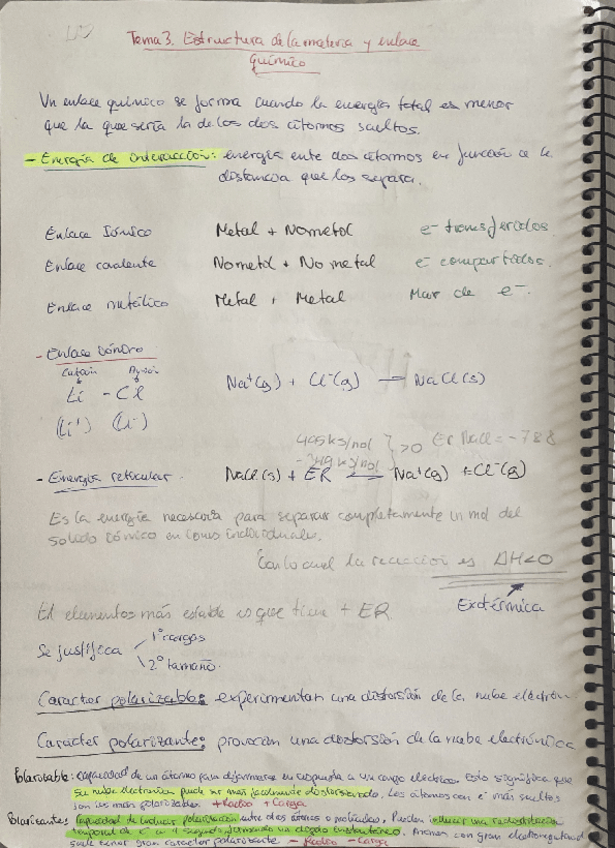 Tema 3. Estructura de la materia y enlace
químico
Un enlace químico se forma cuando la energía total es menor
que la que sería la de los dos átomos sueltos.
- Energía de interacción: energía ente dos átomos en función de la
distancia que los separa.
Enlace Iónico Metal + No metal e- transferidos.
Enlace covalente No metal + No metal e- compartidos.
Enlace metálico Metal + Metal Mar de e-.
- Enlace iónico
Catión Anión
Li - Cl
Na+(g) + Cl-(g) → NaCl(s)
(Li+)
495 kJ/mol
-349 kJ/mol } >0 ER NaCl = -788
- Energía reticular. NaCl(s) + ER Na+(g) + Cl-(g)
Es la energía necesaria para separar completamente un mol del
solido iónico en iones individuales.
Con lo cual la reacción es ΔH<0
Exotérmica
El elementos más estable es que tiene + ER.
Se justifica 1º cargas
2º tamaño.
Caracter polarizable: experimentan una distorsión de la nube electrón
Carácter polarizante: provocan una distorsión de la nube electrónica
Polarizable: capacidad de un átomo para deformarse en respuesta a un campo eléctrico. Esto significa que
su nube electrónica puede ser más facilmente distorsionada. Los átomos con e- más sueltos
son los más polarizables +Radio +Carga
Polarizante: Capacidad de inducir polarización entre dos átomos o moléculas. Pueden inducir una redistribución
temporal de e- en el segundo formando un dipolo instantáneo. con gran electronegatividad
suele tener gran caracter polarizante - Radio - Carga